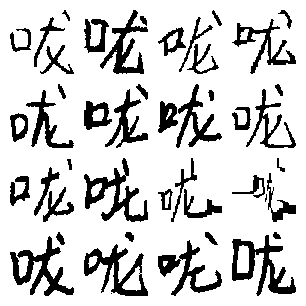 咙咙咙咙
咙咙咙咙
咙咙咙咙
咙咙咙咙